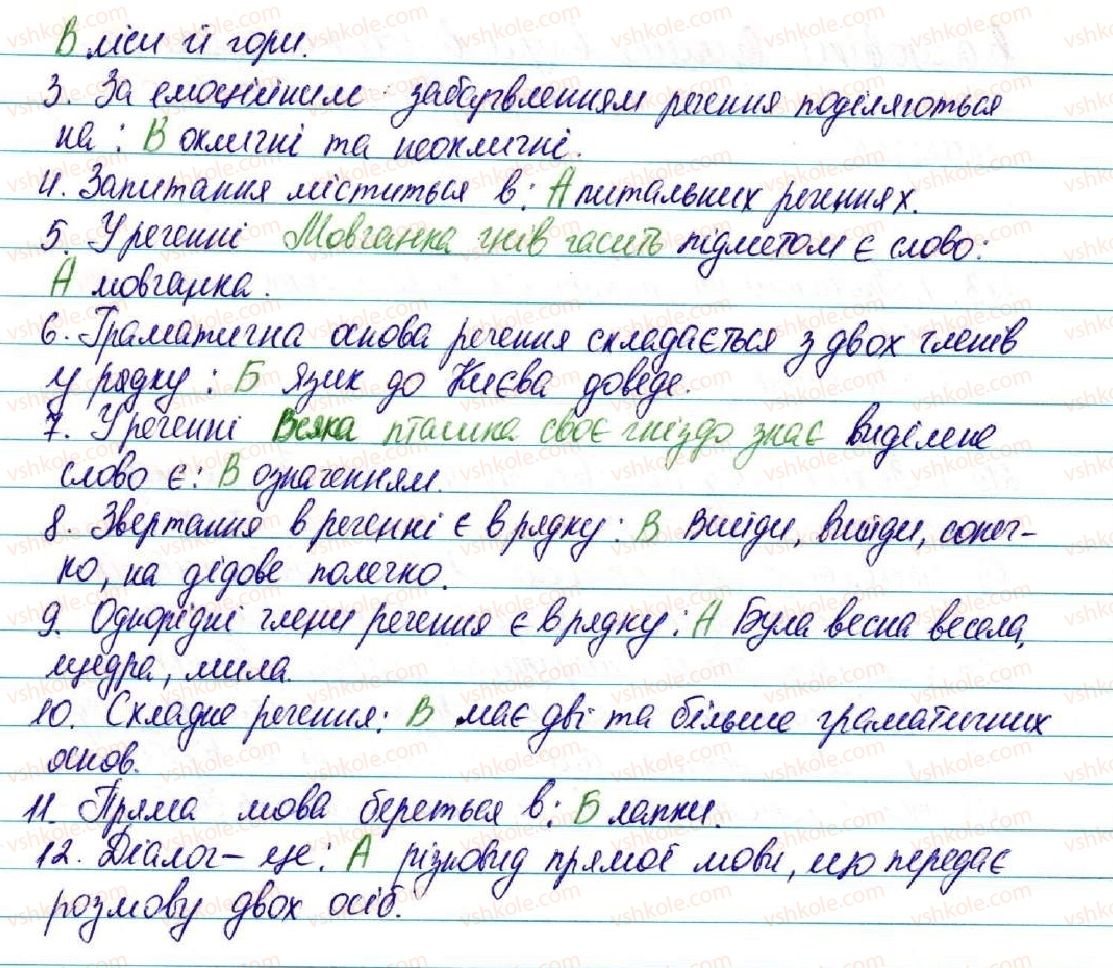 В ліси й гори.
3. За емоційним забарвленням речення поділяються
на: В окличні та неокличні.
4. Запитання міститься в: А питальних реченнях.
5. У реченні Мовчанка гнів гасить підметом є слово:
А мовчанка.
6. Граматична основа речення складається з двох членів
у рядку: Б Язик до Києва доведе.
7. У реченні Всяка пташка своє гніздо знає виділене
слово є: В означенням.
8. Звертання в реченні є в рядку: В Вийди, вийди, сонеч-
ко, на дідове полечко.
9. Однорідні члени речення є в рядку: А Була весна весела,
щедра, мила.
10. Складне речення: В має дві та більше граматичних
основ.
11. Пряма мова береться в: Б лапки.
12. Діалог – це: А різновид прямої мови, що передає
розмову двох осіб.